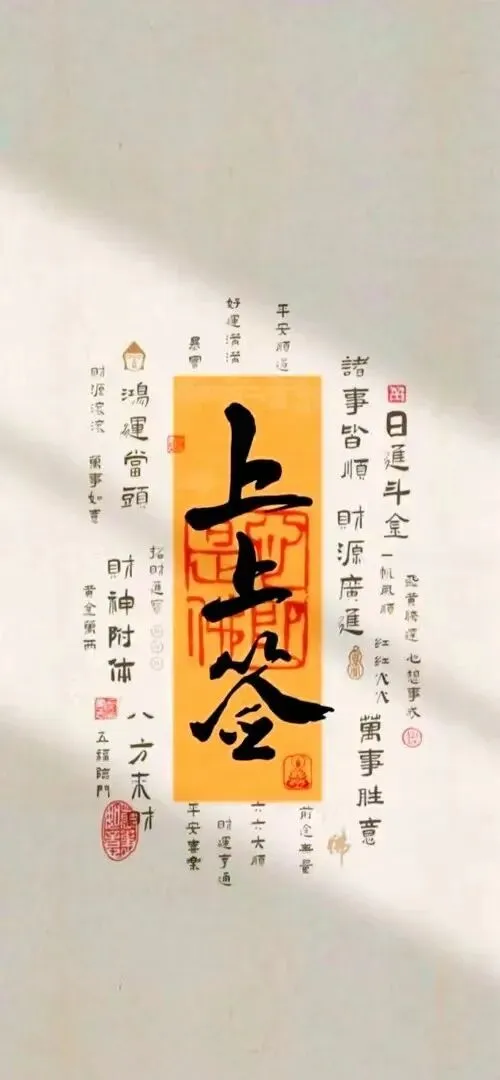 上上签
心即是佛
平安順遂
好運滿滿
暴富
日進斗金
諸事皆順
財源廣進
一帆風順
飛黃騰達
心想事成
紅紅火火
萬事胜意
鴻運當頭
財源滾滾
萬事如意
招財進寶
財神附体
黄金萬两
八方来财
五福臨門
前途無量
六六大順
財運亨通
平安喜樂
佛